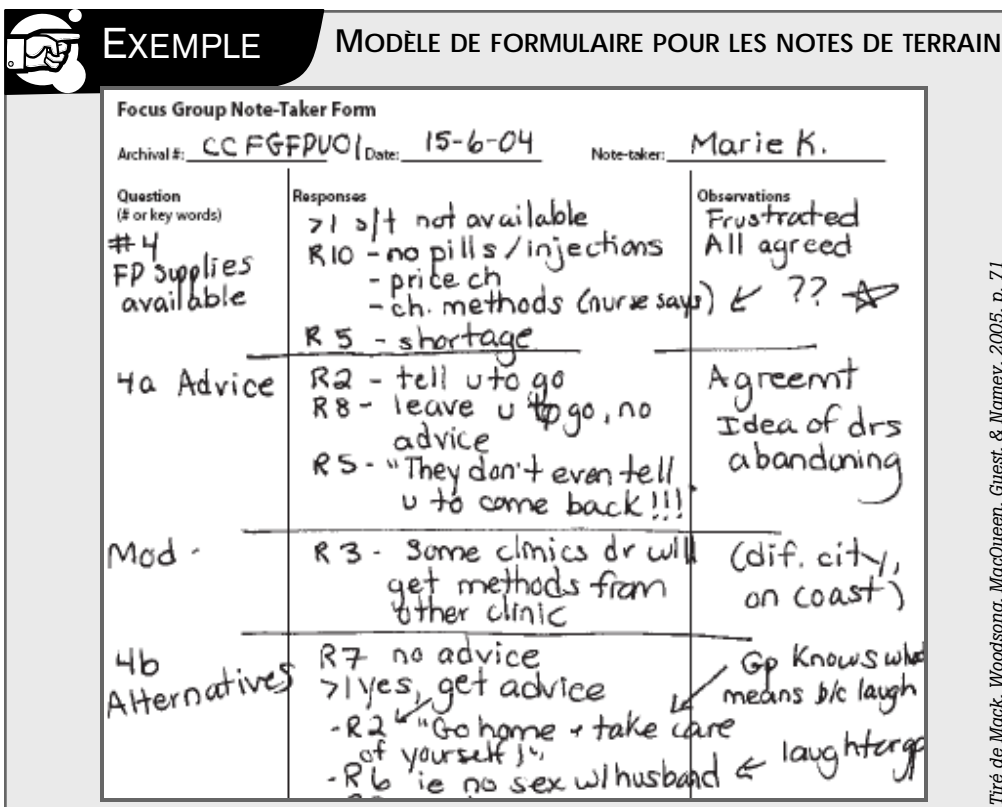 EXEMPLE
MODÈLE DE FORMULAIRE POUR LES NOTES DE TERRAIN
Focus Group Note-Taker Form
Archival #: CCFGFPUO1 Date: 15-6-04 Note-taker: Marie K.
Question
(# or key words)
#4
FP supplies
available
Responses
>1 s/t not available
R10 - no pills / injections
- price ch
- ch. methods (nurse says)
R 5 - shortage
Observations
Frustrated
All agreed
??
4a Advice
R2 - tell u to go
R8 - leave u to go, no
advice
R5 - "They don't even tell
u to come back!!!
Agreemt
Idea of drs
abandoning
Mod -
R 3 - Some clinics dr will
get methods from
other clinic
(dif. city,
on coast)
4b
Alternatives
R7 no advice
>1 yes, get advice
- R2 "Go home + take care
of yourself!"
- R6 ie no sex w/husband
Gp knows what
means b/c laugh
laughter gp
Tiré de Mack, Woodsong, MacQueen, Guest, & Namey, 2005, p. 71